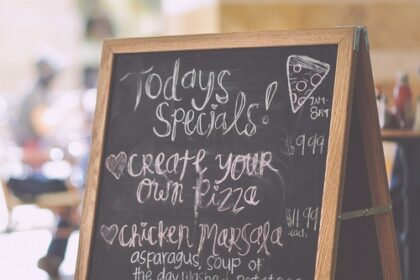 Todays
Specials!
7AM-
8PM
$9.99
♡Create your
Own Pizza
$11.99
each
♡Chicken Marsala
asparagus, soup of
the day, mashed potatoes